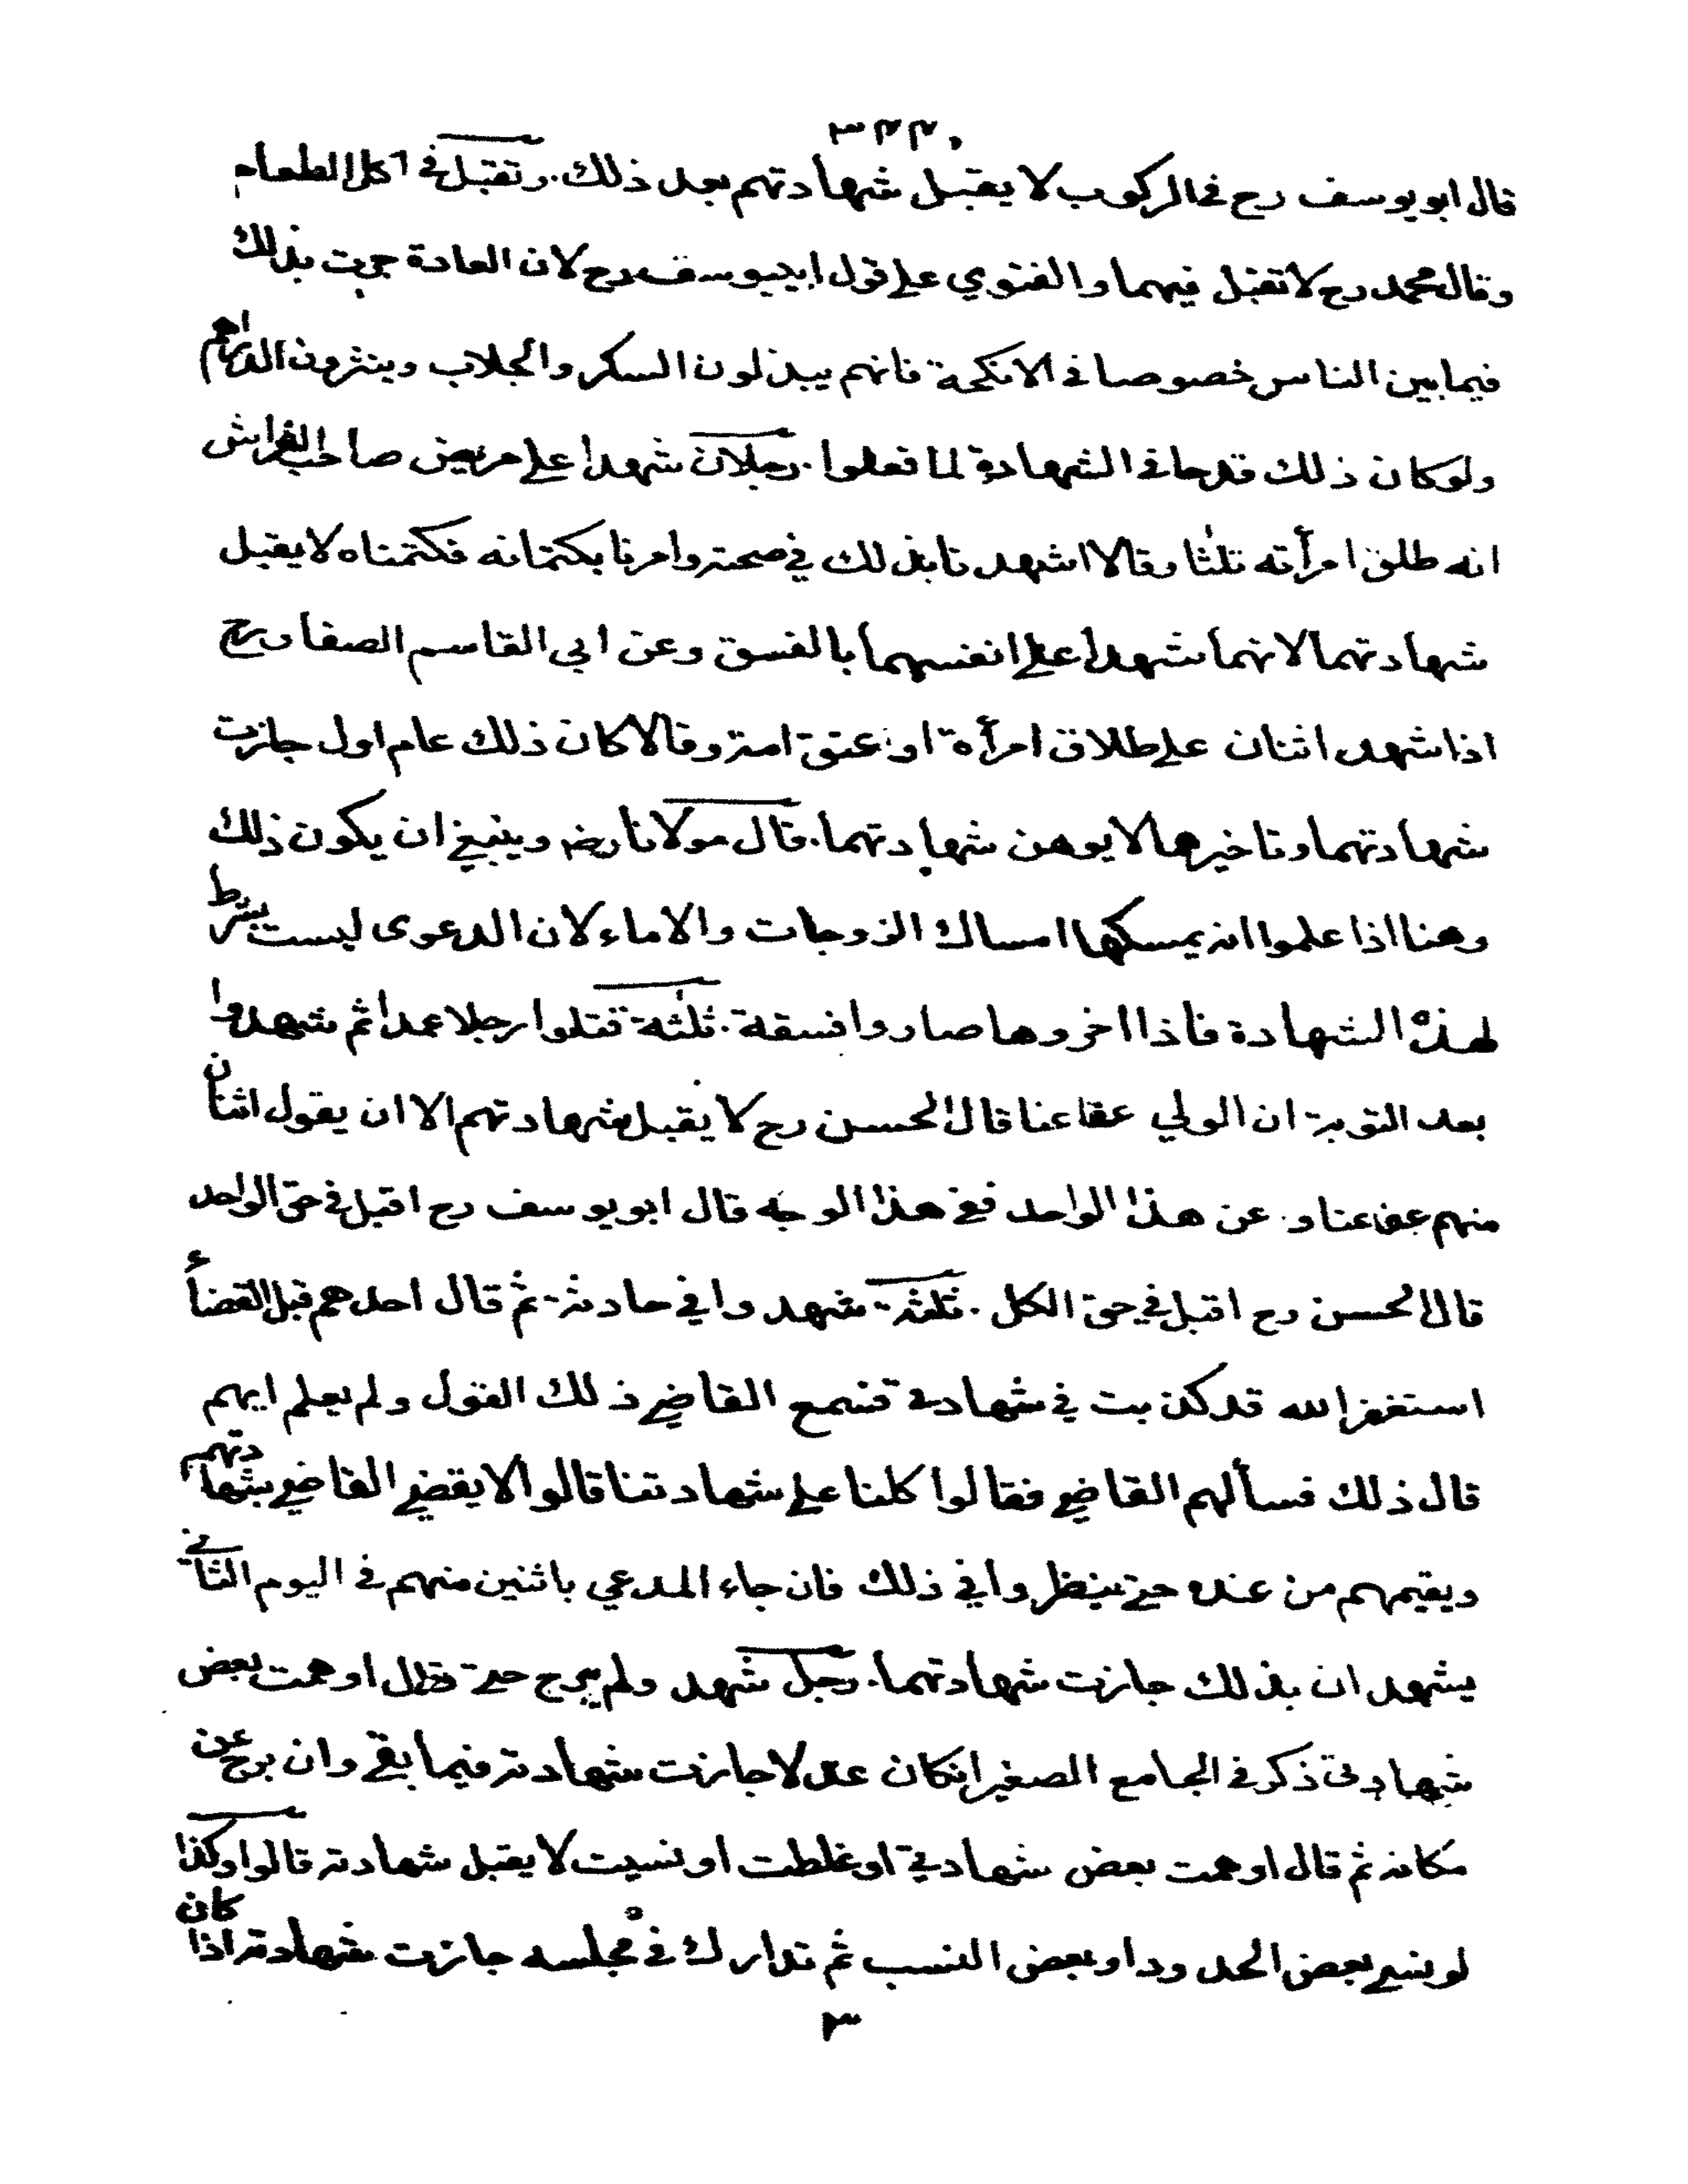 ٣٢٢
قال ابو يوسف رح في الركوب لا يقبل شهادتهم بعد ذلك. وتقبل في اكل الطعام
وقال محمد رح لا تقبل فيهما والفتوي على قول ابي يوسف رح لان العادة جرت بذلك
فيما بين الناس خصوصا في الانكحة فانهم يبذلون السكر والجلاب وينثرون الدراهم
ولو كان ذلك قدحا في الشهادة لما فعلوا. رجلان شهدا على مريض صاحب الفراش
انه طلق امرأته ثلثا وقالا اشهدنا بذلك في صحته وامرنا بكتمانه فكتمناه لا يقبل
شهادتهما لانهما شهدا على انفسهما بالفسق وعن ابي القاسم الصفار رح
اذا شهد اثنان على طلاق امرأة او عتق امة وقالا كان ذلك عام اول جازت
شهادتهما وتاخيرها لا يوهن شهادتهما. قال مولانا رضه وينبغي ان يكون ذلك
وهنا اذا علموا انه يمسكها امساك الزوجات والاماء لان الدعوى ليست بشرط
لهذه الشهادة فاذا اخروها صاروا فسقة. ثلثة قتلوا رجلا عمدا ثم شهدوا
بعد التوبة ان الولي عفا عنا قال الحسن رح لا يقبل شهادتهم الا ان يقول اثنان
منهم عفى عنا و عن هذا الواحد ففي هذا الوجه قال ابو يوسف رح اقبل في حق الواحد
قال الحسن رح اقبل في حق الكل. ثلثة شهدوا في حادثة ثم قال احدهم قبل القضاء
استغفر الله قد كذبت في شهادتي فسمع القاضي ذلك القول ولم يعلم ايهم
قال ذلك فسألهم القاضي فقالوا كلنا على شهادتنا قالوا لا يقضي القاضي بشهادتهم
ويقيمهم من عنده حتى ينظروا في ذلك فان جاء المدعي باثنين منهم في اليوم الثاني
يشهدان بذلك جازت شهادتهما. رجل شهد ولم يبرح حتى قال اوهمت بعض
شهادتي ذكر في الجامع الصغير انكان عدلا جازت شهادته فيما بقي وان برح عن
مكانه ثم قال اوهمت بعض شهادتي او غلطت او نسيت لا يقبل شهادته قالوا وكذا
لو نسي بعض الحدود او بعض النسب ثم تدارك في مجلسه جازت شهادته اذا كان
٣